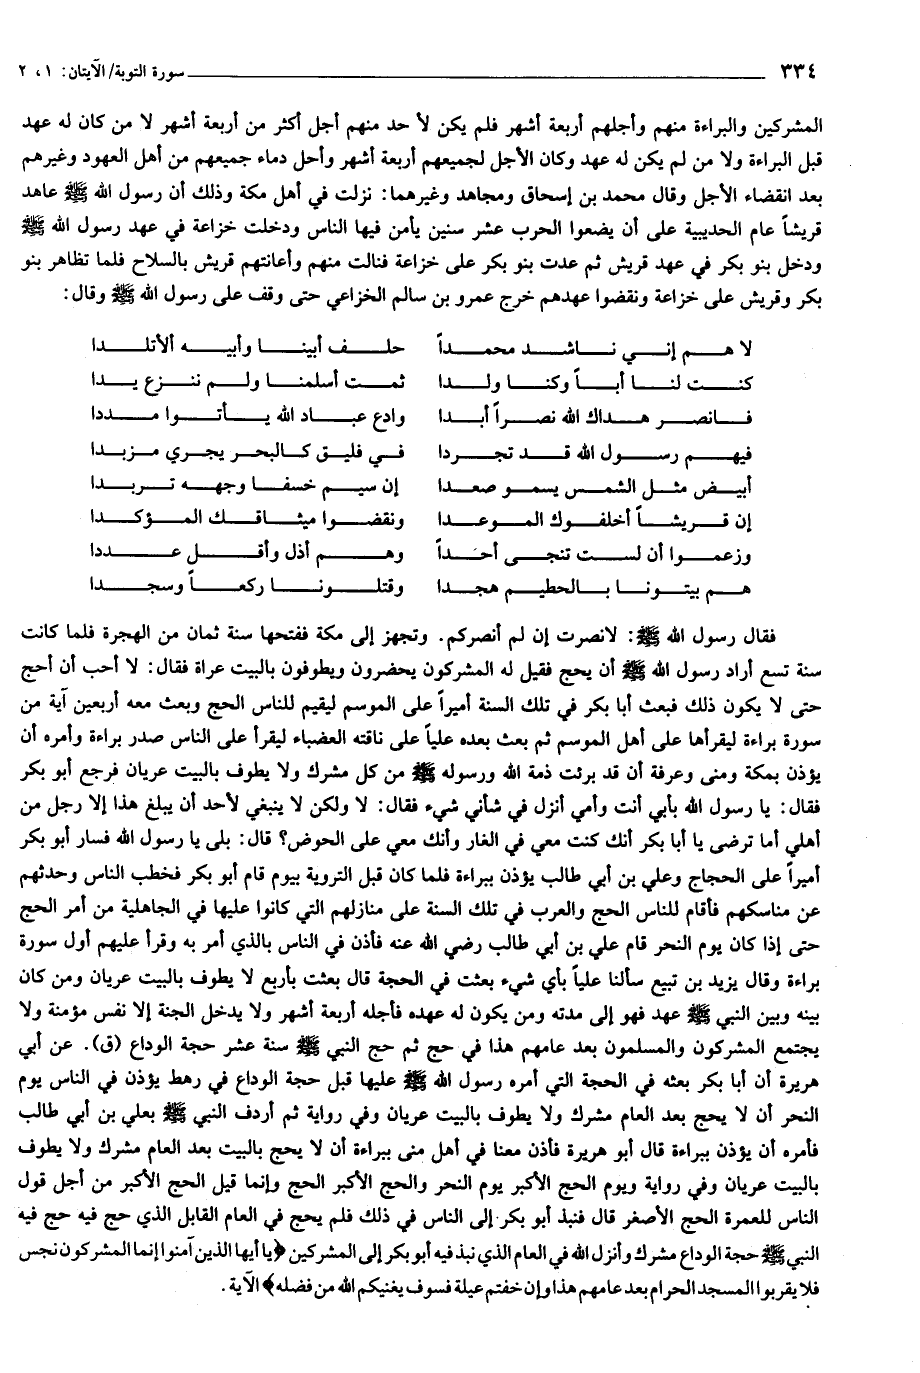 ٣٣٤ سورة التوبة/ الآيتان: ١، ٢
المشركين والبراءة منهم وأجلهم أربعة أشهر فلم يكن لأ حد منهم أجل أكثر من أربعة أشهر لا من كان له عهد
قبل البراءة ولا من لم يكن له عهد وكان الأجل لجميعهم أربعة أشهر وأحل دماء جميعهم من أهل العهود وغيرهم
بعد انقضاء الأجل وقال محمد بن إسحاق ومجاهد وغيرهما: نزلت في أهل مكة وذلك أن رسول الله ﷺ عاهد
قريشاً عام الحديبية على أن يضعوا الحرب عشر سنين يأمن فيها الناس ودخلت خزاعة في عهد رسول الله ﷺ
ودخل بنو بكر في عهد قريش ثم عدت بنو بكر على خزاعة فنالت منهم وأعانتهم قريش بالسلاح فلما تظاهر بنو
بكر وقريش على خزاعة ونقضوا عهدهم خرج عمرو بن سالم الخزاعي حتى وقف على رسول الله ﷺ وقال:
لا هــم إنــي نــاشــد محمــداً حلــف أبينــا وأبيــه ألأتلــدا
كنــت لنــا أبــاً وكنــا ولــدا ثمــت أسلمنــا ولــم ننــزع يــدا
فــانصــر هــداك الله نصــراً أبــدا وادع عبــاد الله يــأتــوا مــددا
فيهــم رســول الله قــد تجــردا فــي فليــق كــالبحــر يجــري مــزبــدا
أبيــض مثــل الشمــس يسمــو صعــدا إن سيــم خسفــا وجهــه تــربــدا
إن قــريشــاً أخلفــوك المــوعــدا ونقضــوا ميثــاقــك المــؤكــدا
وزعمــوا أن لســت تنجــى أحــداً وهــم أذل وأقــل عــددا
هــم بيتــونــا بــالحطيــم هجــدا وقتلــونــا ركعــاً وسجــدا
فقال رسول الله ﷺ: لانصرت إن لم أنصركم. وتجهز إلى مكة ففتحها سنة ثمان من الهجرة فلما كانت
سنة تسع أراد رسول الله ﷺ أن يحج فقيل له المشركون يحضرون ويطوفون بالبيت عراة فقال: لا أحب أن أحج
حتى لا يكون ذلك فبعث أبا بكر في تلك السنة أميراً على الموسم ليقيم للناس الحج وبعث معه أربعين آية من
سورة براءة ليقرأها على أهل الموسم ثم بعث بعده علياً على ناقته العضباء ليقرأ على الناس صدر براءة وأمره أن
يؤذن بمكة ومنى وعرفة أن قد برئت ذمة الله ورسوله ﷺ من كل مشرك ولا يطوف بالبيت عريان فرجع أبو بكر
فقال: يا رسول الله بأبي أنت وأمي أنزل في شأني شيء فقال: لا ولكن لا ينبغي لأحد أن يبلغ هذا إلا رجل من
أهلي أما ترضى يا أبا بكر أنك كنت معي في الغار وأنك معي على الحوض؟ قال: بلى يا رسول الله فسار أبو بكر
أميراً على الحجاج وعلي بن أبي طالب يؤذن ببراءة فلما كان قبل التروية بيوم قام أبو بكر فخطب الناس وحدثهم
عن مناسكهم فأقام للناس الحج والعرب في تلك السنة على منازلهم التي كانوا عليها في الجاهلية من أمر الحج
حتى إذا كان يوم النحر قام علي بن أبي طالب رضي الله عنه فأذن في الناس بالذي أمر به وقرأ عليهم أول سورة
براءة وقال يزيد بن تبيع سألنا علياً بأي شيء بعثت في الحجة قال بعثت بأربع لا يطوف بالبيت عريان ومن كان
بينه وبين النبي ﷺ عهد فهو إلى مدته ومن يكون له عهده فأجله أربعة أشهر ولا يدخل الجنة إلا نفس مؤمنة ولا
يجتمع المشركون والمسلمون بعد عامهم هذا في حج ثم حج النبي ﷺ سنة عشر حجة الوداع (ق). عن أبي
هريرة أن أبا بكر بعثه في الحجة التي أمره رسول الله ﷺ عليها قبل حجة الوداع في رهط يؤذن في الناس يوم
النحر أن لا يحج بعد العام مشرك ولا يطوف بالبيت عريان وفي رواية ثم أردف النبي ﷺ بعلي بن أبي طالب
فأمره أن يؤذن ببراءة قال أبو هريرة فأذن معنا في أهل منى ببراءة أن لا يحج بالبيت بعد العام مشرك ولا يطوف
بالبيت عريان وفي رواية ويوم الحج الأكبر يوم النحر والحج الأكبر الحج وإنما قيل الحج الأكبر من أجل قول
الناس للعمرة الحج الأصغر قال فنبذ أبو بكر إلى الناس في ذلك فلم يحج في العام القابل الذي حج فيه حج فيه
النبي ﷺ حجة الوداع مشرك وأنزل الله في العام الذي نبذ فيه أبو بكر إلى المشركين ﴿يا أيها الذين آمنوا إنما المشركون نجس
فلا يقربوا المسجد الحرام بعد عامهم هذا وإن خفتم عيلة فسوف يغنيكم الله من فضله﴾ الآية.